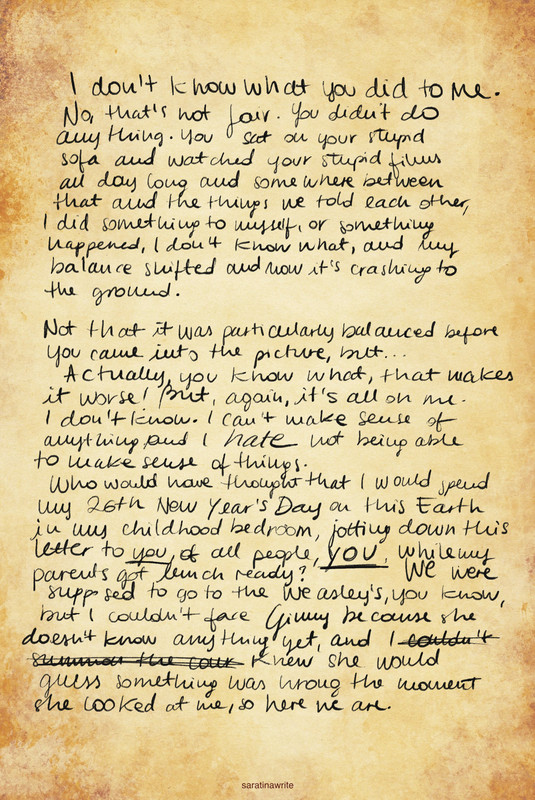 I don't know what you did to me.
No, that's not fair. You didn't do
anything. You sat on your stupid
sofa and watched your stupid films
all day long and somewhere between
that and the things we told each other,
I did something to myself, or something
happened, I don't know what, and my
balance shifted and now it's crashing to
the ground.
Not that it was particularly balanced before
you came into the picture, but...
Actually, you know what, that makes
it worse! But, again, it's all on me.
I don't know. I can't make sense of
anything and I hate not being able
to make sense of things.
Who would have thought that I would spend
my 26th New Year's Day on this Earth
in my childhood bedroom, jotting down this
letter to you, of all people, YOU, while my
parents got lunch ready? We were
supposed to go to the Weasley's, you know,
but I couldn't face Ginny because she
doesn't know anything yet, and I couldn't
summon the cour knew she would
guess something was wrong the moment
she looked at me, so here we are.
saratinawrite